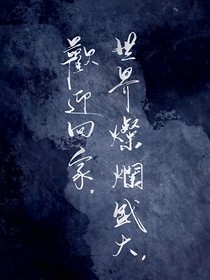 世界燦爛盛大，
歡迎回家。